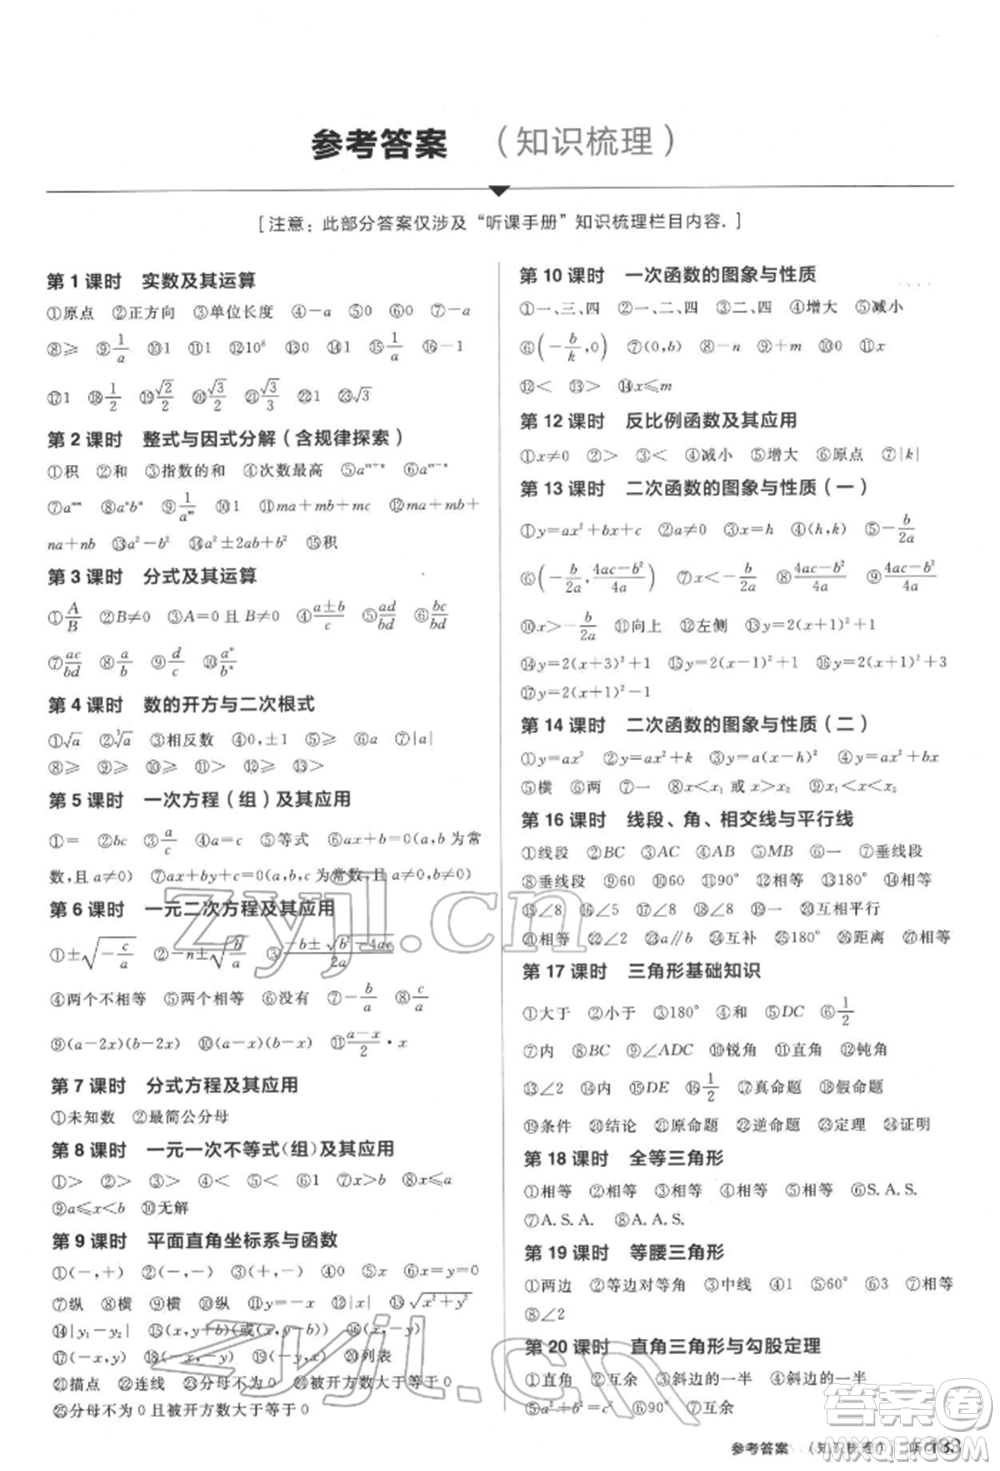 参考答案 （知识梳理）
[注意：此部分答案仅涉及“听课手册”知识梳理栏目内容.]
第 1 课时 实数及其运算
①原点 ②正方向 ③单位长度 ④-a ⑤0 ⑥0 ⑦-a
⑧≥ ⑨1/a ⑩1 ⑪1 ⑫10⁸ ⑬1 ⑭1 ⑮1/a ⑯-1
⑰1 ⑱1/2 ⑲√2/2 ⑳√3/2 ㉑√3/3 ㉒1 ㉓√3
第 2 课时 整式与因式分解（含规律探索）
①积 ②和 ③指数的和 ④次数最高 ⑤aᵐ⁺ⁿ ⑥aᵐ⁻ⁿ
⑦aᵐⁿ ⑧aⁿbⁿ ⑨1/aᵐ ⑩1 ⑪ma+mb+mc ⑫ma+mb+
na+nb ⑬a²-b² ⑭a²±2ab+b² ⑮积
第 3 课时 分式及其运算
①A/B ②B≠0 ③A=0 且 B≠0 ④(a±b)/c ⑤ad/bd ⑥bc/bd
⑦ac/bd ⑧a/b ⑨d/c ⑩aⁿ/bⁿ
第 4 课时 数的开方与二次根式
①√a ②³√a ③相反数 ④0,±1 ⑤≥ ⑥a ⑦|a|
⑧≥ ⑨≥ ⑩≥ ⑪> ⑫≥ ⑬> ⑭≥
第 5 课时 一次方程（组）及其应用
①= ②bc ③a/c ④a=c ⑤等式 ⑥ax+b=0(a,b 为常
数,且 a≠0) ⑦ax+by+c=0(a,b,c 为常数,且 a≠0)
第 6 课时 一元二次方程及其应用
①±√(-c/a) ②-n±√(b/a) ③(-b±√(b²-4ac))/2a
④两个不相等 ⑤两个相等 ⑥没有 ⑦-b/a ⑧c/a
⑨(a-2x)(b-2x) ⑩(a-x)(b-x) ⑪(a-x)/2·x
第 7 课时 分式方程及其应用
①未知数 ②最简公分母
第 8 课时 一元一次不等式（组）及其应用
①> ②> ③> ④< ⑤1 ⑥1 ⑦x>b ⑧x≤a
⑨a≤x<b ⑩无解
第 9 课时 平面直角坐标系与函数
①(-,+) ②(-,-) ③(+,-) ④y=0 ⑤x=0 ⑥x=y=0
⑦纵 ⑧横 ⑨横 ⑩纵
⑬√(x²+y²)
⑭|y₁-y₂| ⑮(x,y+b)(或(x,y-b))
⑰(-x,y) ⑱(-x,-y) ⑲(y,x) ⑳列表
㉑描点 ㉒连线 ㉓分母不为 0 ㉔被开方数大于等于 0
㉕分母不为 0 且被开方数大于等于 0
第 10 课时 一次函数的图象与性质
①一、三、四 ②一、二、四 ③二、四 ④增大 ⑤减小
⑥(-b/k,0) ⑦(0,b) ⑧-n ⑨+m ⑩y ⑪x
⑫< ⑬> ⑭x≤m
第 12 课时 反比例函数及其应用
①x≠0 ②> ③< ④减小 ⑤增大 ⑥原点 ⑦|k|
第 13 课时 二次函数的图象与性质（一）
①y=ax²+bx+c ②a≠0 ③x=h ④(h,k) ⑤-b/2a
⑥(-b/2a,(4ac-b²)/4a) ⑦x<-b/2a ⑧(4ac-b²)/4a ⑨(4ac-b²)/4a
⑩x>-b/2a ⑪向上 ⑫左侧 ⑬y=2(x+1)²+1
⑭y=2(x+3)²+1 ⑮y=2(x-1)²+1 ⑯y=2(x+1)²+3
⑰y=2(x+1)²-1
第 14 课时 二次函数的图象与性质（二）
①y=ax² ②y=ax²+k ③y=a(x-h)² ④y=ax²+bx
⑤横 ⑥两 ⑦一 ⑧x<x₁ 或 x>x₂ ⑨x₁<x<x₂
第 16 课时 线段、角、相交线与平行线
①线段 ②BC ③AC ④AB ⑤BM ⑥一 ⑦垂线段
⑧垂线段 ⑨60 ⑩60 ⑪90° ⑫相等 ⑬180° ⑭相等
⑮∠8 ⑯∠7 ⑰∠8 ⑱∠8 ⑲一 ⑳互相平行
㉑相等 ㉒∠2 ㉓a∥b ㉔互补 ㉕180° ㉖距离 ㉗相等
第 17 课时 三角形基础知识
①大于 ②小于 ③180° ④和 ⑤DC ⑥1/2
⑦内 ⑧BC ⑨∠ADC ⑩锐角 ⑪直角 ⑫钝角
⑬∠2 ⑭外 ⑮DE ⑯1/2 ⑰真命题 ⑱假命题
⑲条件 ⑳结论 ㉑原命题 ㉒逆命题 ㉓定理 ㉔证明
第 18 课时 全等三角形
①相等 ②相等 ③相等 ④相等 ⑤相等 ⑥S.A.S.
⑦A.S.A. ⑧S.S.S.
第 19 课时 等腰三角形
①两边 ②等边对等角 ③中线 ④1 ⑤相等 ⑥60° ⑦相等
⑧∠2
第 20 课时 直角三角形与勾股定理
①直角 ②互余 ③斜边的一半 ④斜边的一半
⑤a²+b²=c² ⑥90° ⑦互余
参考答案 （知识梳理） 183
zyjl.cn
zyjl.cn
答案圈